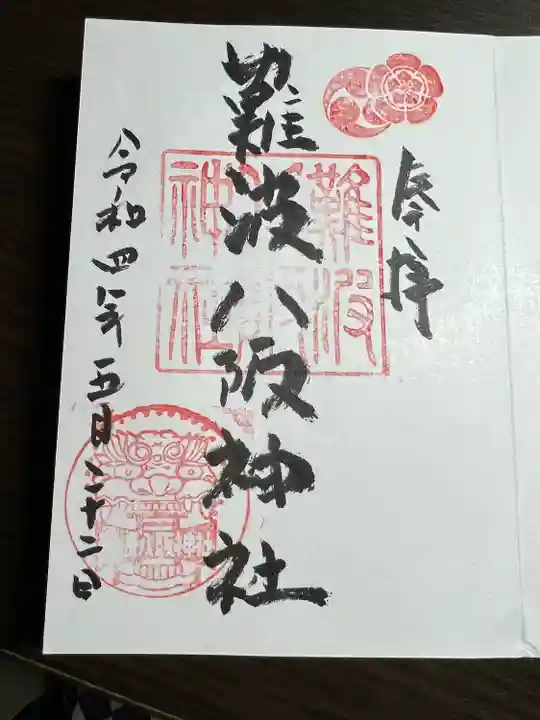 奉拝
難波八阪神社
令和四年五月二十二日
難波
八阪
神社